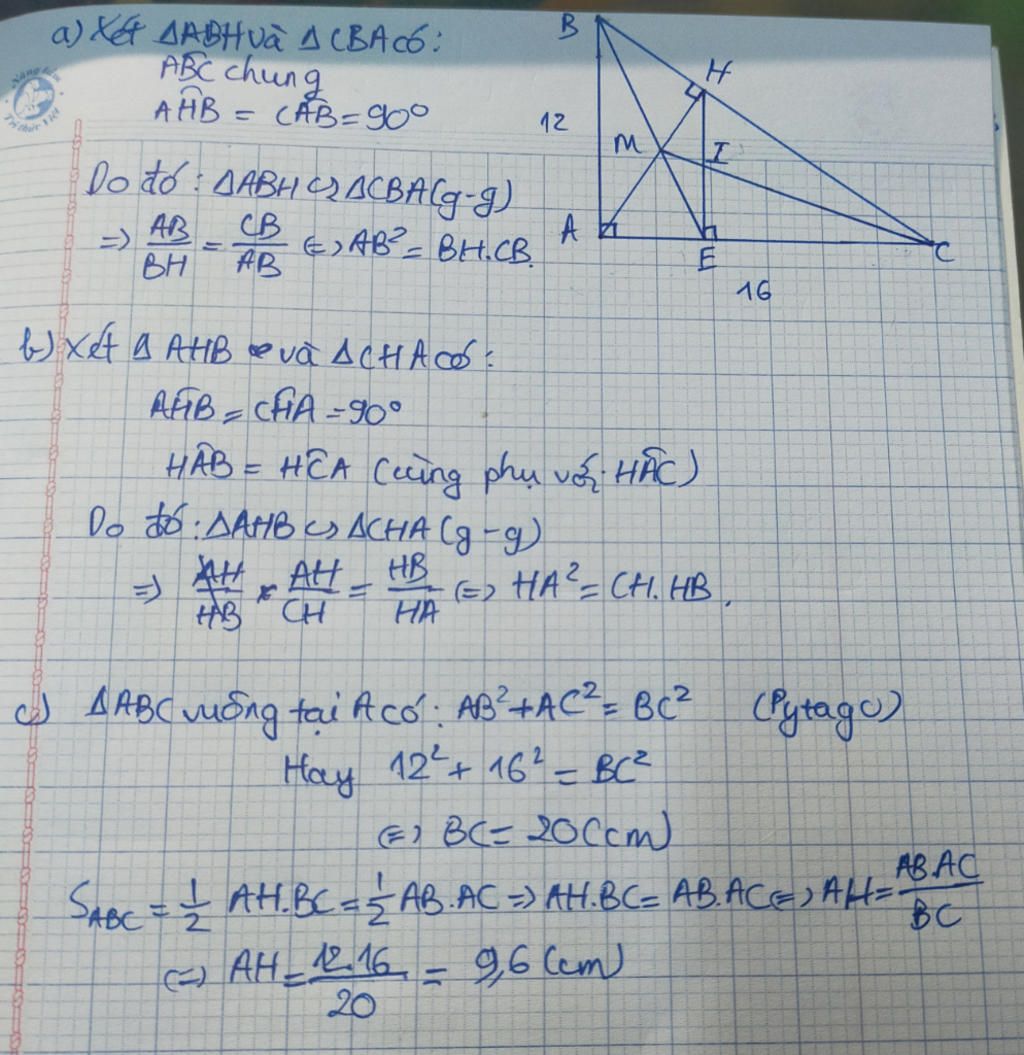 a) Xét ΔABH và ΔCBA có:
ABC chung
AHB = CAB = 90°
Do đó: ΔABH ∽ ΔCBA (g-g)
=> AB/BH = CB/AB <=> AB² = BH.CB.
B
H
12
M
I
A
E
C
16
b) Xét Δ AHB và ΔCHA có:
AHB = CHA = 90°
HAB = HCA (cùng phụ với HAC)
Do đó: ΔAHB ∽ ΔCHA (g-g)
=> AH/CH = HB/HA <=> HA² = CH.HB.
c) ΔABC vuông tại A có: AB² + AC² = BC² (Pytago)
Hay 12² + 16² = BC²
<=> BC = 20 (cm)
S_ABC = 1/2 AH.BC = 1/2 AB.AC => AH.BC = AB.AC <=> AH = AB.AC/BC
<=> AH = 12.16/20 = 9,6 (cm)
Nâng tầm
Tri thức Việt